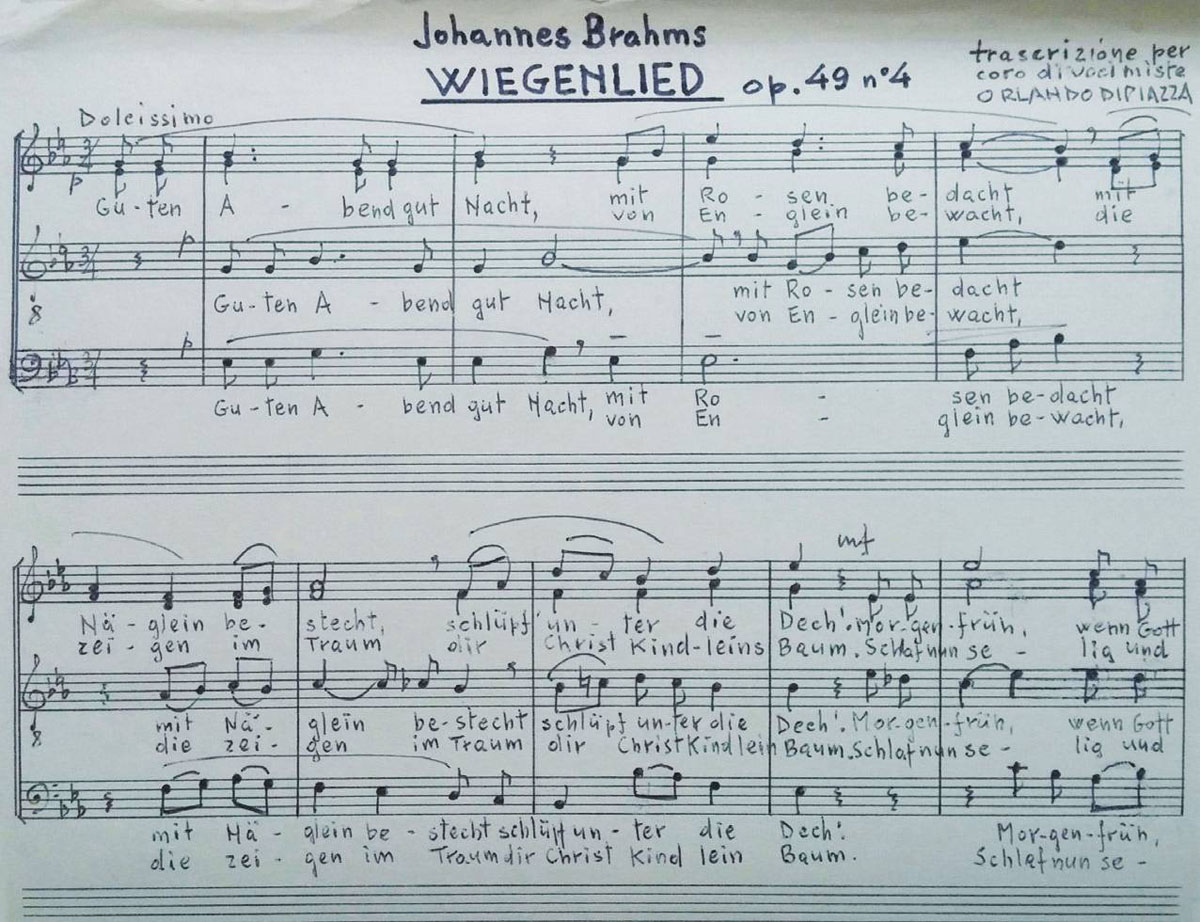 Johannes Brahms
WIEGENLIED op. 49 n°4
trascrizióne per
coro di voci miste
ORLANDO DIPIAZZA
Dolcissimo
p
Gu-ten A - bend gut Nacht, mit Ro - sen be- dacht mit
von En - glein be- wacht, die
p
Gu-ten A - bend gut Nacht, mit Ro - sen be- dacht
von En - glein be- wacht,
8
p
Gu-ten A - bend gut Nacht, mit Ro - sen be-dacht
von En - glein be-wacht,
mf
Nä - glein be - stecht, schlüpf' un - ter die Dech'. Mor-gen-früh, wenn Gott
zei - gen im Traum dir Christ Kind-leins Baum. Schlaf nun se - lig und
mit Nä - glein be-stecht schlüpf un-ter die Dech'. Mor-gen-früh, wenn Gott
8
die zei - gen im Traum dir Christ Kind lein Baum. Schlaf nun se - lig und
mit Nä - glein be - stecht schlüpf un - ter die Dech'. Mor-gen-früh,
die zei - gen im Traum dir Christ Kind lein Baum. Schlaf nun se -